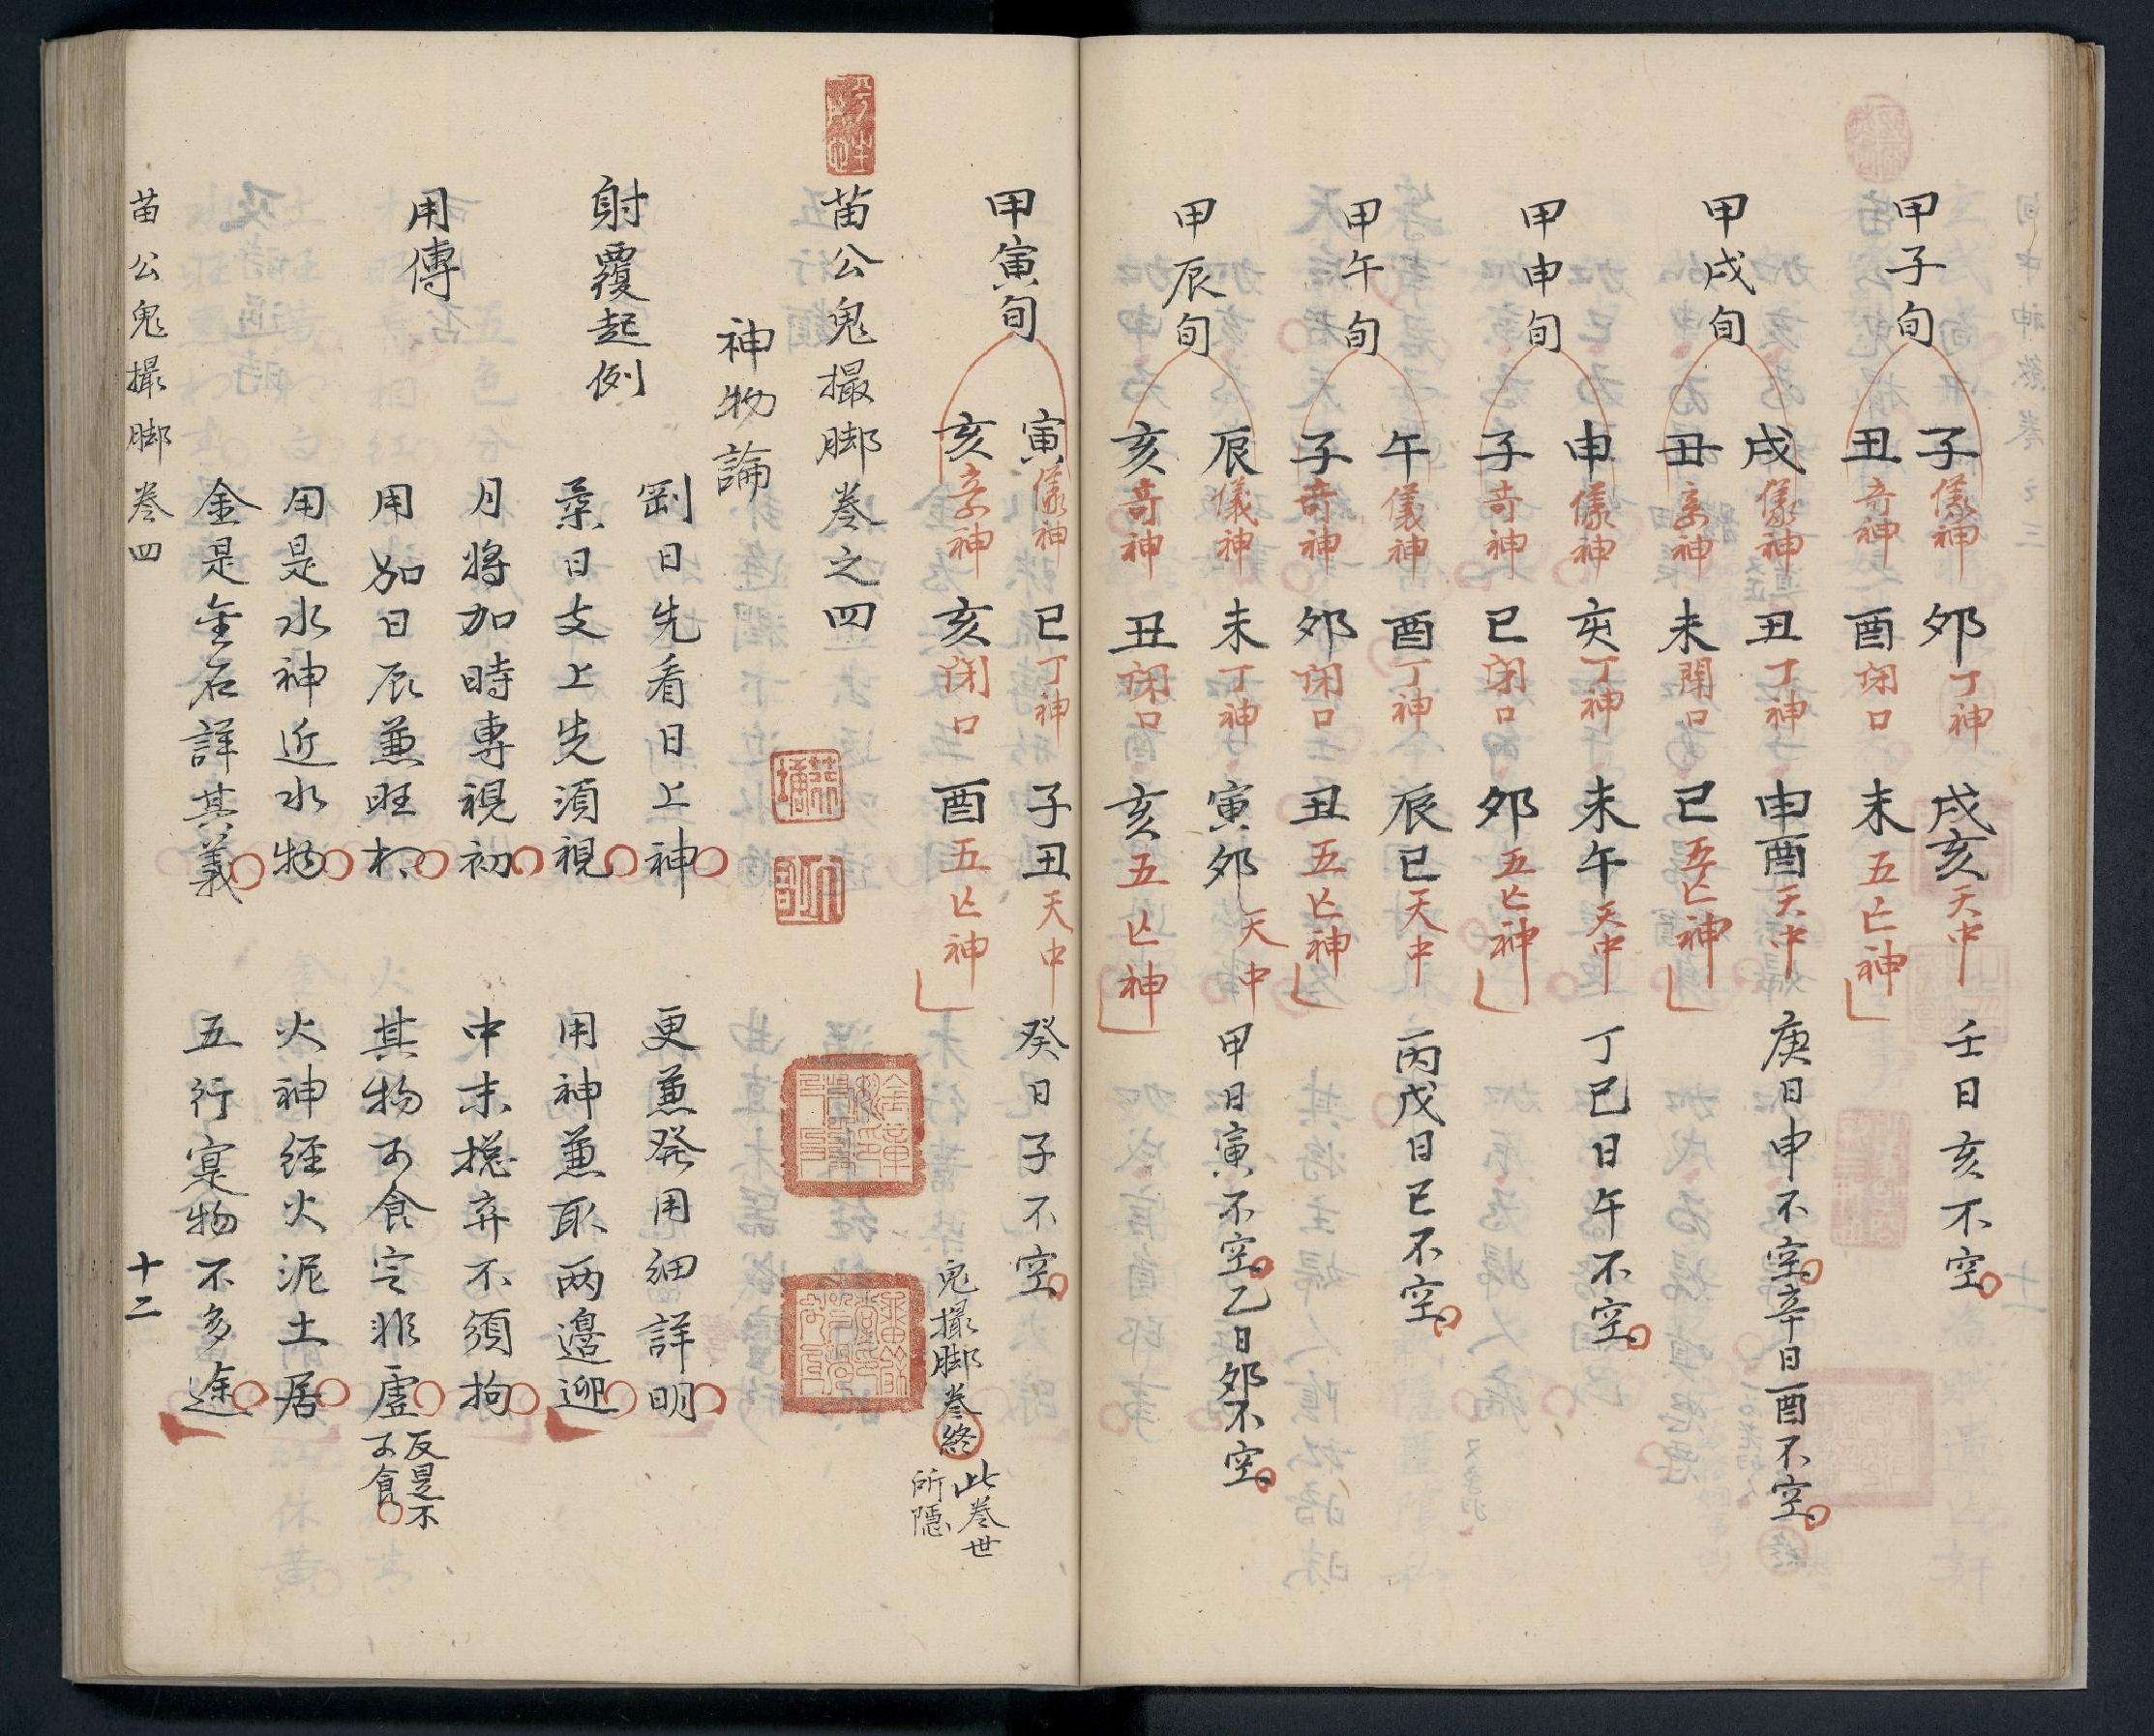 甲子旬
子儀神 夘丁神 戌亥天中 壬日亥不空
丑奇神 酉閉口 未五亡神
甲戌旬
戌儀神 丑丁神 申酉天中 庚日申不空辛日酉不空
丑奇神 未閉口 巳五亡神
甲申旬
申儀神 亥丁神 未午天中 丁巳日午不空
子奇神 巳閉口 夘五亡神
甲午旬
午儀神 酉丁神 辰巳天中 丙戊日巳不空
子奇神 夘閉口 丑五亡神
甲辰旬
辰儀神 未丁神 寅夘天中 甲日寅不空乙日夘不空
亥奇神 丑閉口 亥五亡神
甲寅旬
寅儀神 巳丁神 子丑天中 癸日子不空
亥奇神 亥閉口 酉五亡神 鬼撮脚卷終 此卷世所隱
苗公鬼撮脚卷之四
神物論
射覆起例
剛日先看日上神 更兼發用細詳明
柔日支上先須視 用神兼取两邉迎
月將加時專視初 中末揔弃不須拘
用傳
用加日辰兼旺相 其物可食定非虛 反是不可食
用是水神近水物 火神經火泥土居
金是金石詳其義 五行寔物不多途
苗公鬼撮脚 卷四 十二